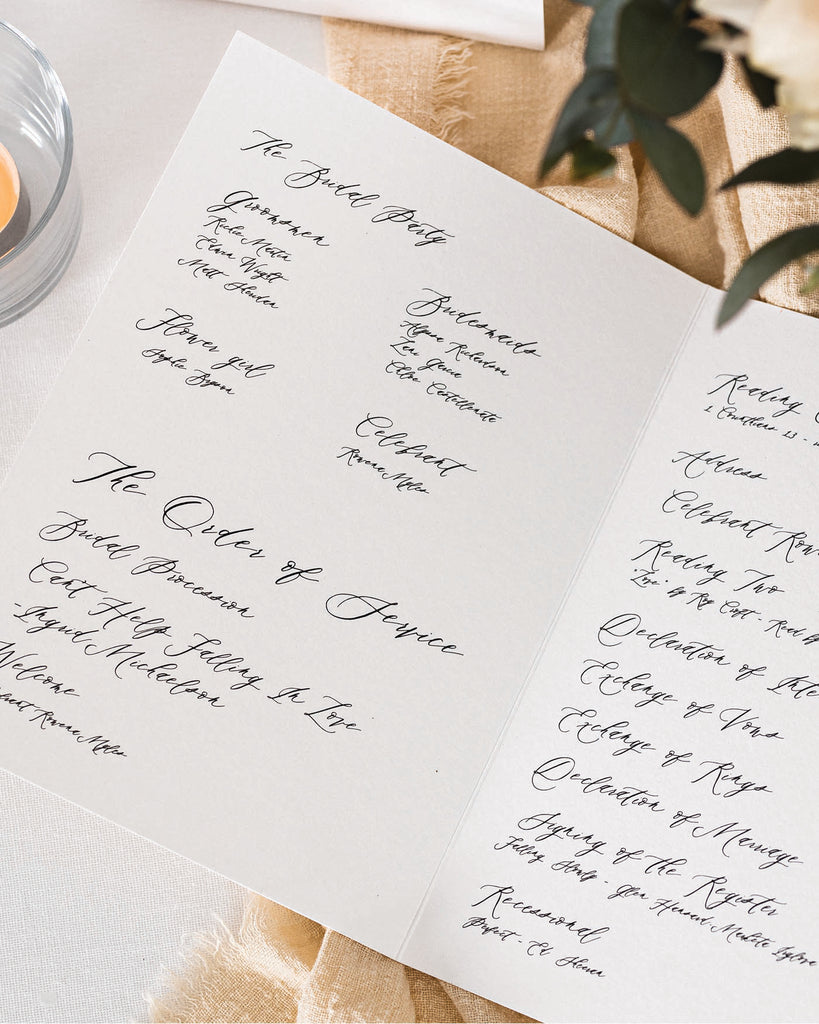 The Bridal Party
Groomsmen
Richie Martin
Edward Wright
Matt Howden
Flower girl
Sophie Brown
Bridesmaids
Richardson
Zoe
Chloe Castellorate
Celebrant
Rowena Myles
The Order of Service
Bridal Procession
Can't Help Falling In Love
-Ingrid Michaelson
Welcome
Rowena Myles
Reading
1 Corinthians 13 -
Address
Celebrant Row
Reading Two
"Love" by Roy Croft - Read by
Declaration of Inte
Exchange of Vows
Exchange of Rings
Declaration of Marriage
Signing of the Register
Falling Slowly - Glen Hansard, Markéta Irglová
Recessional
Perfect - Ed Sheeran